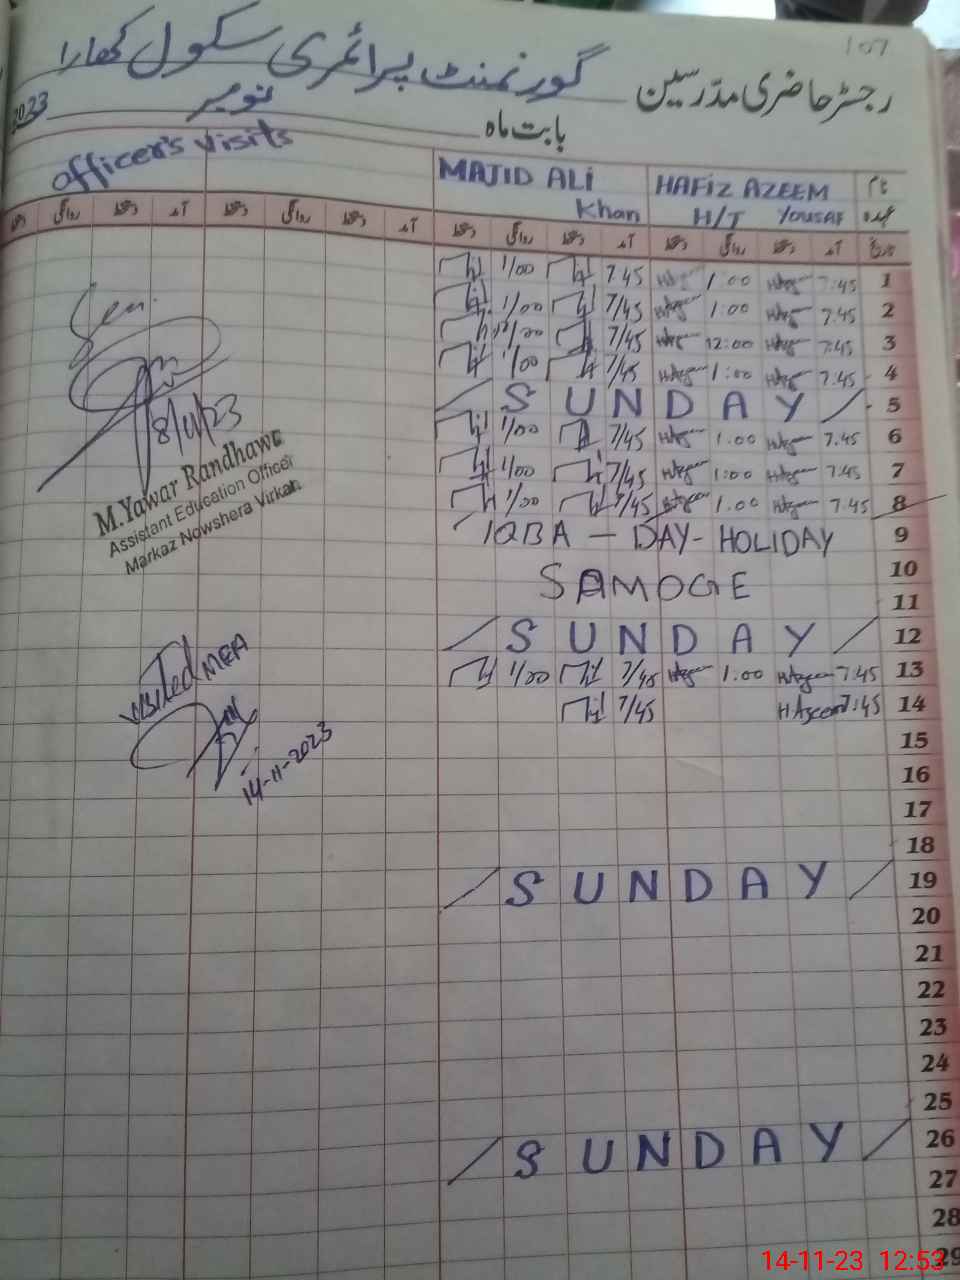 107
رجسٹر حاضری مدرسین گورنمنٹ پرائمری سکول کھارا
بابت ماہ نومبر 2023
officer's visits
نام HAFIZ AZEEM MAJID ALI
عہدہ YOUSAF H/T Khan
تاریخ آمد دستخط روانگی دستخط آمد دستخط روانگی دستخط آمد دستخط روانگی دستخط آمد دستخط روانگی دستخط
1 7:45 1:00 7.45 1/00
2 7:45 1:00 7/45 1/00
3 7:45 12:00 7/45 12/00
4 7:45 1:00 7/45 1/00
5 SUNDAY
6 7:45 1.00 7/45 1/00
7 7:45 1:00 7/45 1/00
8 7:45 1.00 7/45 1/00
9 IQBA - DAY - HOLIDAY
10 SAMOGE
11
12 SUNDAY
13 7:45 1:00 7/45 1/00
14 7:45 7/45
15
16
17
18
19 SUNDAY
20
21
22
23
24
25
26 SUNDAY
27
28
29
Seen
8/11/23
M.Yawar Randhawa
Assistant Education Officer
Markaz Nowshera Virkan
Visited MEA
14-11-2023
14-11-23 12:53